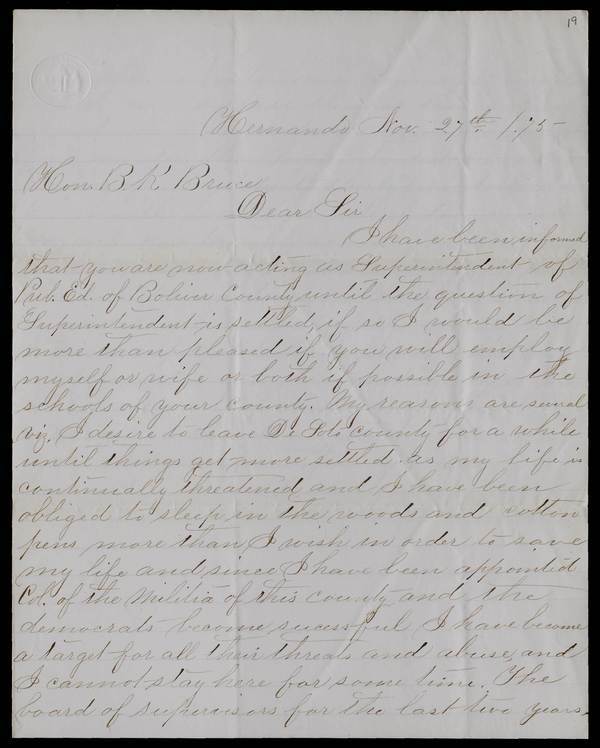 19
Hernando Nov. 27th /75
Hon. B. K. Bruce
Dear Sir
I have been informed
that you are now acting as Superintendent of
Pub. Ed. of Boliver County until the question of
Superintendent is settled, if so I would be
more than pleased if you will employ
myself or wife or both if possible in the
schools of your county. My reasons are several
viz. I desire to leave De Soto county for a while
until things get more settled as my life is
continually threatened and I have been
obliged to sleep in the woods and cotton
pens more than I wish in order to save
my life and since I have been appointed
Col. of the Militia of this county and the
democrats become sucessful I have become
a target for all their threats and abuse, and
I cannot stay here for some time. The
board of supervisors for the last two years